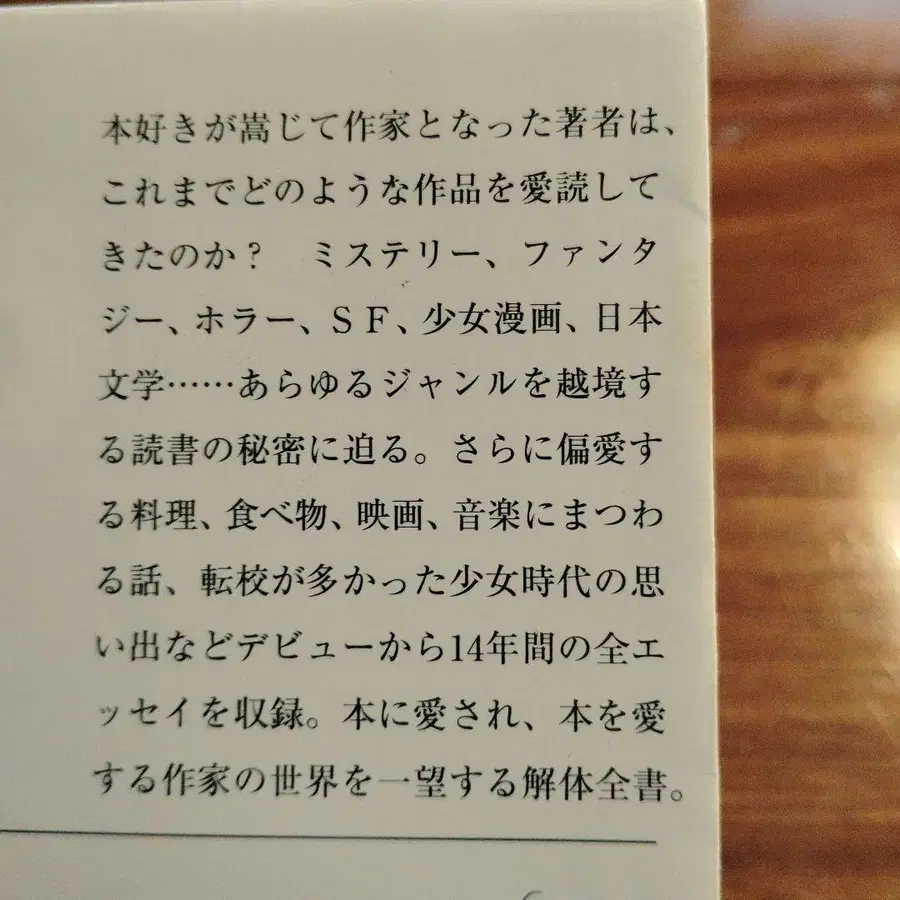 本好きが嵩じて作家となった著者は、
これまでどのような作品を愛読して
きたのか？　ミステリー、ファンタ
ジー、ホラー、ＳＦ、少女漫画、日本
文学……あらゆるジャンルを越境す
る読書の秘密に迫る。さらに偏愛す
る料理、食べ物、映画、音楽にまつわ
る話、転校が多かった少女時代の思
い出などデビューから14年間の全エ
ッセイを収録。本に愛され、本を愛
する作家の世界を一望する解体全書。